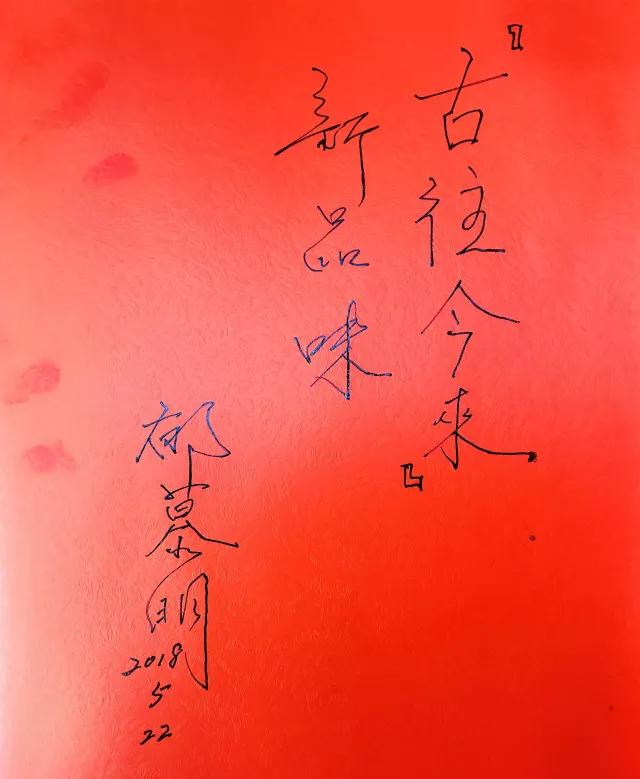 『古往今來』
新品味
郁慕明
2018
5
22